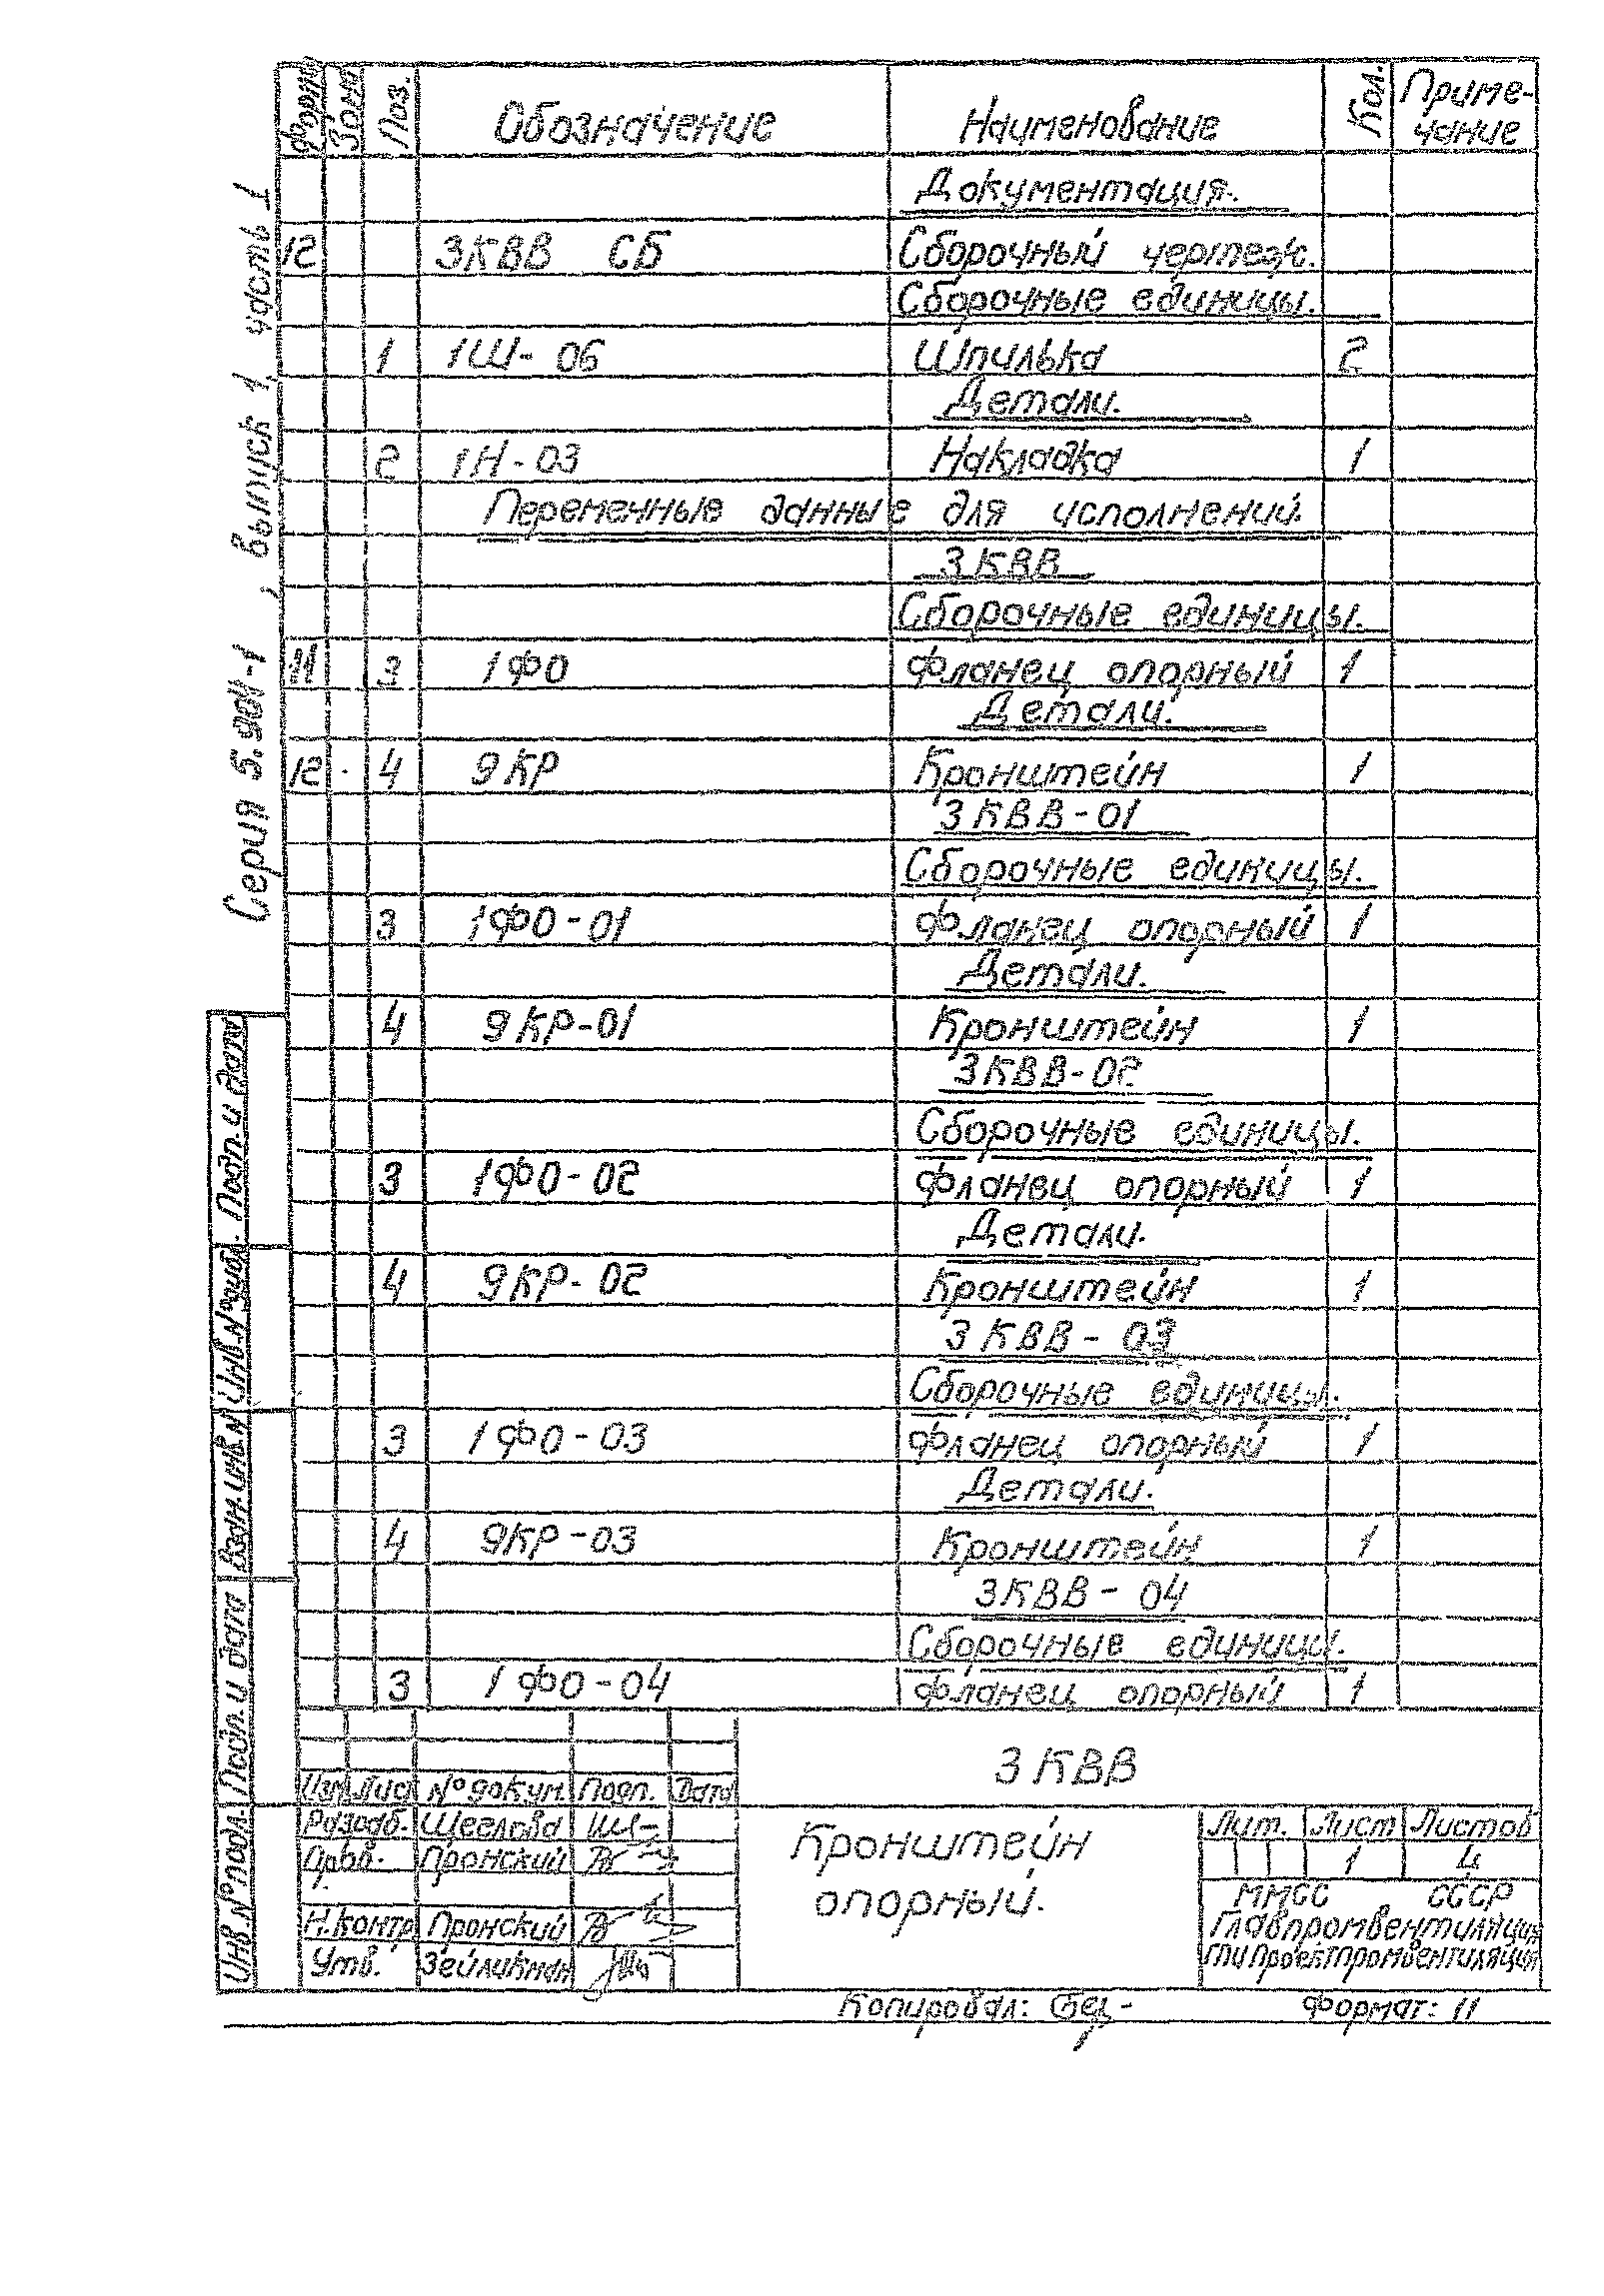 Серия 5.904-1 , выпуск 1, часть I
Формат Зона Поз. Обозначение Наименование Кол. Приме-
чание
Документация.
12 3КВВ СБ Сборочный чертеж.
Сборочные единицы.
1 1Ш-06 Шпилька 2
Детали.
2 1Н-03 Накладка 1
Переменные данные для исполнений.
3КВВ
Сборочные единицы.
11 3 1ФО Фланец опорный 1
Детали.
12 4 9КР Кронштейн 1
3КВВ-01
Сборочные единицы.
3 1ФО-01 Фланец опорный 1
Детали.
4 9КР-01 Кронштейн 1
3КВВ-02
Сборочные единицы.
3 1ФО-02 Фланец опорный 1
Детали.
4 9КР-02 Кронштейн 1
3КВВ-03
Сборочные единицы.
3 1ФО-03 Фланец опорный 1
Детали.
4 9КР-03 Кронштейн 1
3КВВ-04
Сборочные единицы.
3 1ФО-04 Фланец опорный 1
Подп. и дата
Инв. № дубл.
Взам. инв. №
Подп. и дата
Инв. № подл.
3КВВ
Изм Лист № докум. Подп. Дата
Разраб. Щеглова
Пров. Пронский
Н.контр Пронский
Утв. Зейликман
Кронштейн
опорный.
Лит. Лист Листов
1 4
ММСС СССР
Главпромвентиляция
ГПИ Проектпромвентиляция
Копировал: Формат: 11